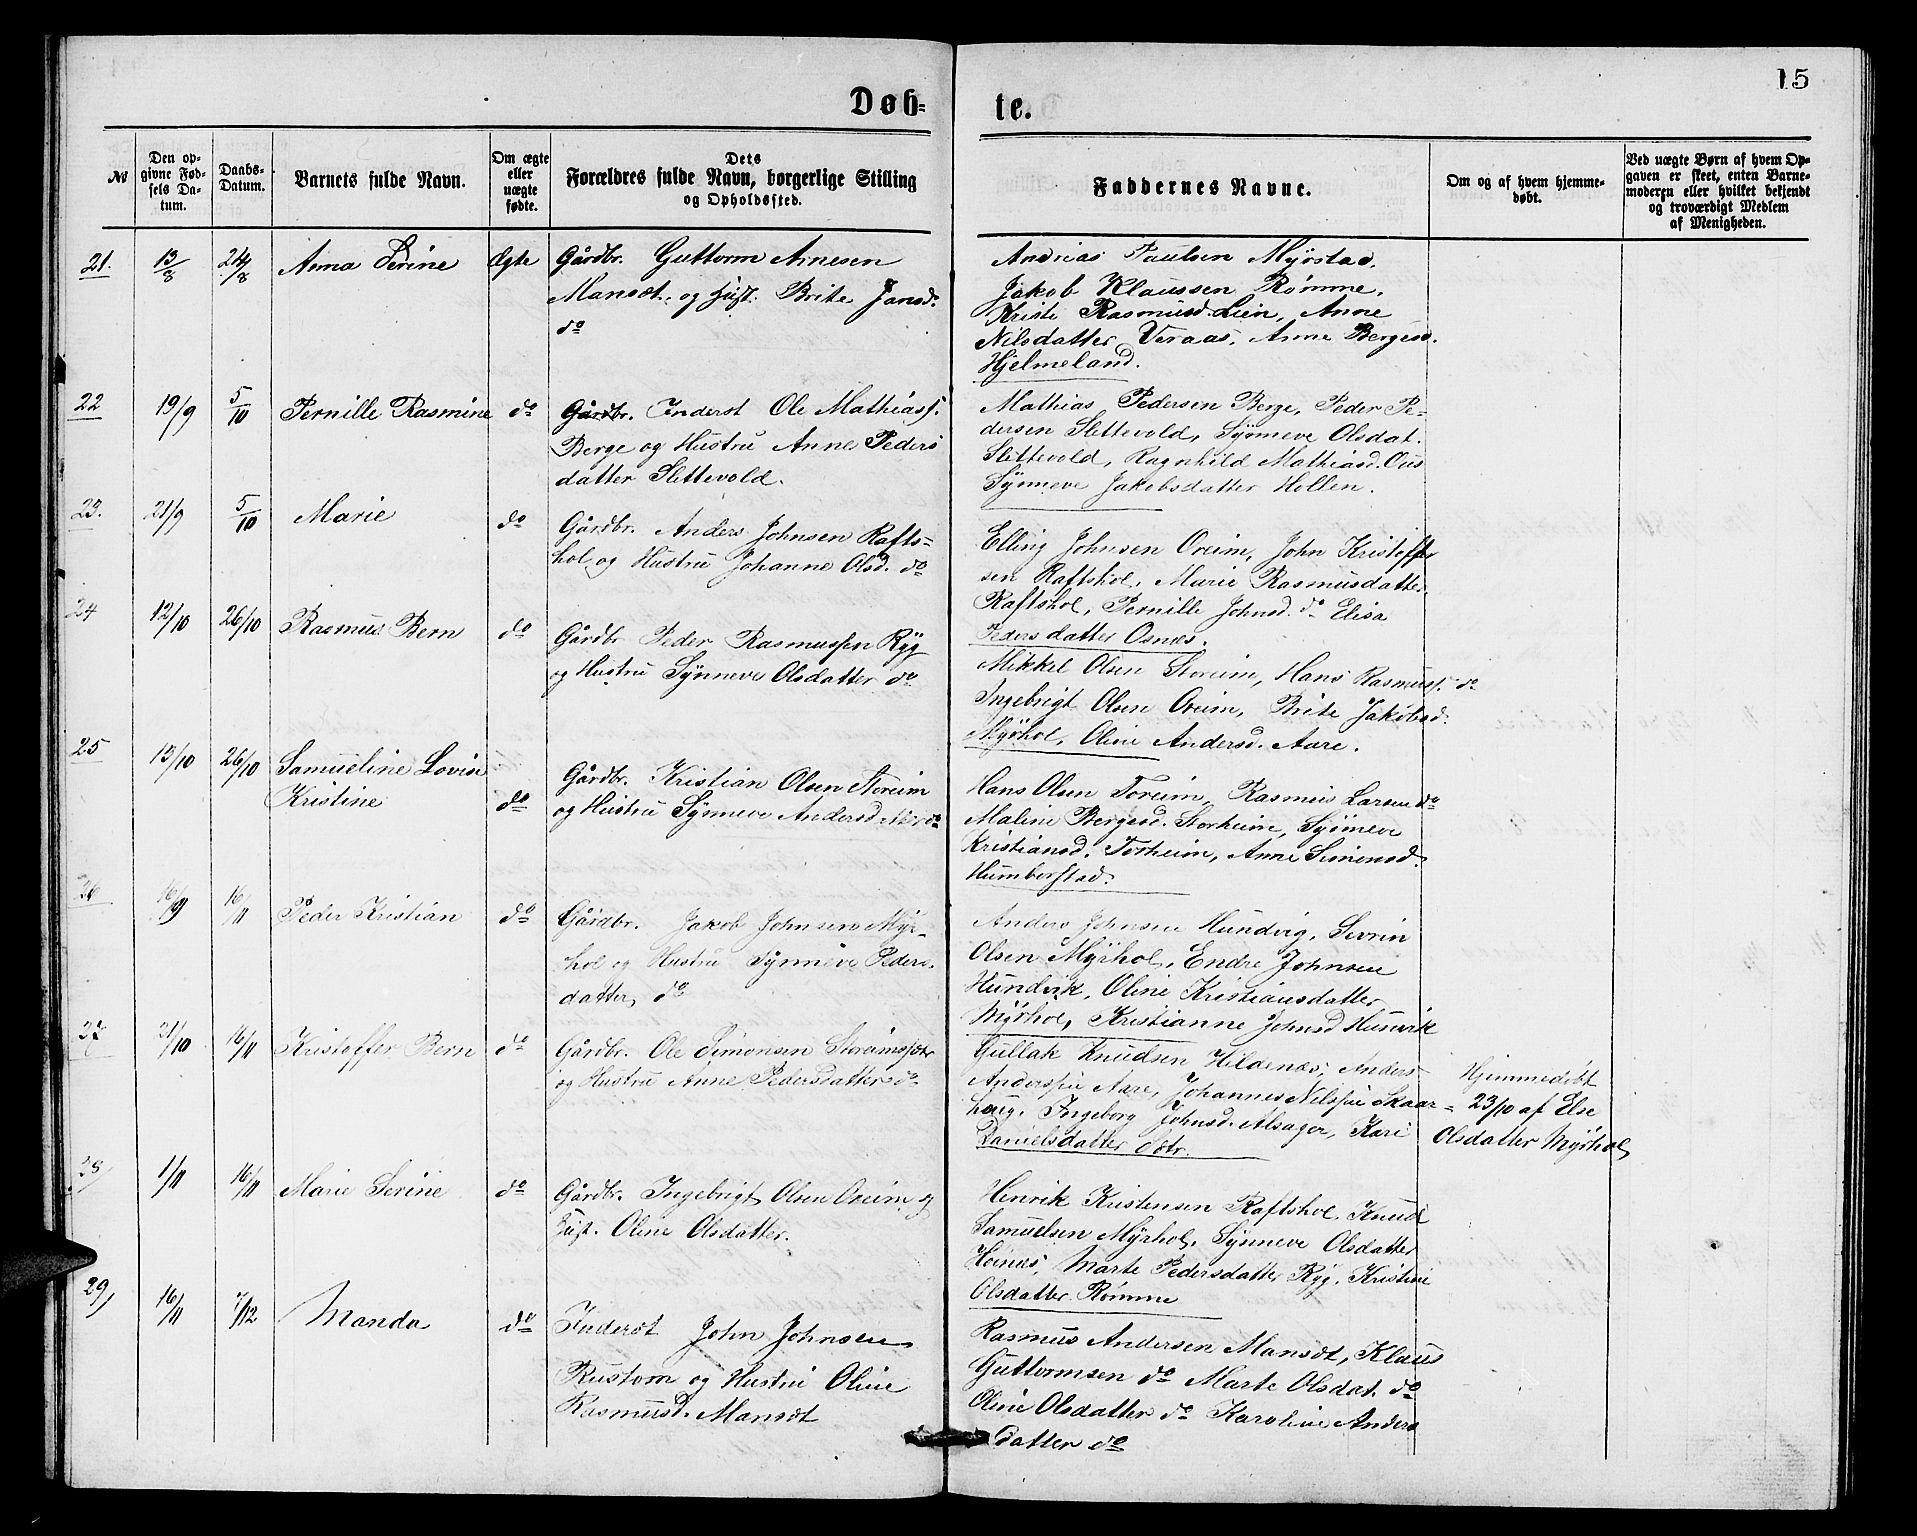 15
Døb-
te.
№
Den op-
givne Fød-
sels Da-
tum.
Daabs-
Datum.
Barnets fulde Navn.
Om ægte
eller
uægte
fødte.
Dets
Forældres fulde Navn, borgerlige Stilling
og Opholdssted.
Faddernes Navne.
Om og af hvem hjemme-
døbt.
Ved uægte Børn af hvem Op-
gaven er skeet, enten Barne-
moderen eller hvilket bekjendt
og troværdigt Medlem
af Menigheden.
21. 13/8 24/8 Anna Serine Ægte
Gårdbr. Guttorm Arnesen
Mansæt. og Hust. Brite Jansd.
do
Andrias Paulsen Myrstad,
Jakob Klaussen Rømme,
Kristi Rasmusd. Lien, Anne
Nilsdatter Veraas, Anne Bergesd.
Hjelmeland.
22 19/9 5/10 Pernille Rasmine do
Inderst Ole Mathiass.
Berge og Hustru Anne Peders
datter Slettevold.
Mathias Pedersen Berge, Peder Pe-
dersen Slettevold, Synneve Olsdat.
Slettevold, Ragnhild Mathiasd. Ous
Synneve Jakobsdatter Hollen.
23. 21/9 5/10 Marie do
Gårdbr. Anders Johnsen Rafts-
hol og Hustru Johanne Olsd. do
Elling Johnsen Oreim, John Kristoffer
sen Raftshol, Marie Rasmusdatter
Raftshol, Pernille Johnsd. do Elisa
Peders datter Osnes.
24 12/10 26/10 Rasmus Bern do
Gårdbr Peder Rasmussen Ryg
og Hustru Synneve Olsdatter do
Mikkel Olsen Storeim, Hans Rasmuss. do
Ingebrigt Olsen Oreim, Brite Jakobsd.
Myrhol, Oline Andersd. Aare.
25 13/10 26/10 Samueline Lovise
Kristine do
Gårdbr. Kristian Olsen Storeim
og Hustru Synneve Andersd do
Hans Olsen Toreim, Rasmus Larsen do
Maline Bergesd. Storheim, Synneve
Kristiansd. Torheim, Anne Simensd.
Humberstad.
26 16/9 16/11 Peder Kristian do
Gårdbr. Jakob Johnsen Myr-
hol og Hustru Synneve Peders.
datter do
Anders Johnsen Hundvig, Sevrin
Olsen Myrhol, Endre Johnsen
Hundvik, Oline Kristiansdatter
Myrhol, Kristianne Johnsd Hunvik
27 21/10 16/11 Kristoffer Bern do
Gårdbr. Ole Simonsen Storeimssætr
og Hustru Anne Pedersdatter do
Gullak Knudsen Hildenæs, Anders
Anderssen Aare, Johannes Nilssen Skaar-
houg, Ingeborg Johnsd. Alsager, Kari
Danielsdatter
Hjemmedøbt
23/10 af Else
Olsdatter Myrhol
28 1/11 16/11 Marie Serine do
Gårdbr. Ingebrigt Olsen Oreim og
Hust. Oline Olsdatter.
Henrik Kristensen Raftshol. Knud
Samuelsen Myrhol, Synneve Olsdatter
Heinæs, Marte Pedersdatter Ryg, Kristine
Olsdatter Rømme
29 16/11 7/12 Manda do
Inderst John Johnsen
Rustom og Hustru Oline
Rasmusd. Mansæt
Rasmus Andersen Mansæt, Klaus
Guttormsen do Marte Olsdat. do
Oline Olsdatter do Karoline Anders
datter do